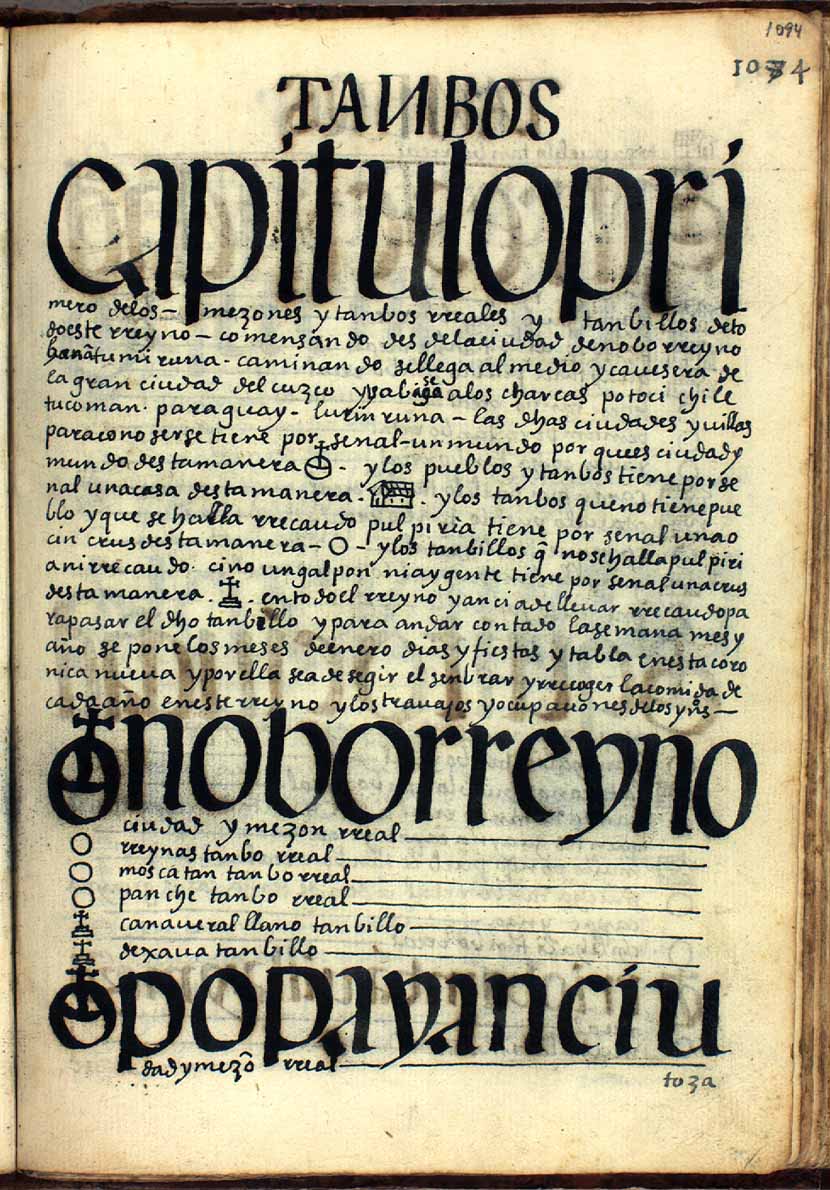 1094
1074
TANBOS
capitulo pri
mero delos - mezones y tanbos rreales y tanbillos de to
do este rreyno - comensando desde la ciudad de nobo rreyno
hanantumi runa - caminando se llega al medio y cavesera de
la gran ciudad del cuzco y alos charcas potoci chile
tucoman . paraguay - lurin runa - las dhas ciudades y uillas
para conoserse tiene por senal - un mundo por que es ciudad y
mundo desta manera - y los pueblos y tanbos tiene por se
nal una casa desta manera . y los tanbos que no tiene pue
blo y que se halla rrecaudo pulpiria tiene por senal una o
cin crus desta manera - o - y los tanbillos q̃ no se halla pulpiri
a ni rrecaudo . cino un galpon ni ay gente tiene por senal una crus
desta manera . en todo el rreyno y anci a de llevar rrecaudo pa
ra pasar el dho tanbillo y para andar contado la semana mes y
año se pone los meses de enero dias y fiestas y tabla en esta coro
nica nueva y por ella se a de segir el senbrar y rrecoger la comida de
cada año en este rreyno y los travajos y ocupaciones de los yn̄s -
nobo rreyno
ciudad y mezon rreal
rreynas tanbo rreal
moscatan tanbo rreal
panche tanbo rreal
canaveral llano tanbillo
de xaua tanbillo
popayan ciu
dad y mezõ rreal
toza